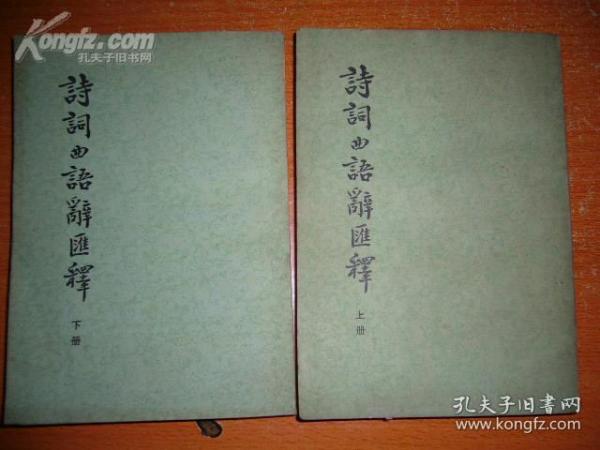 Kongfz.com
孔夫子旧书网
詩詞曲語辭匯釋
下册
詩詞曲語辭匯釋
上册
孔夫子旧書网
www.kongfz.com